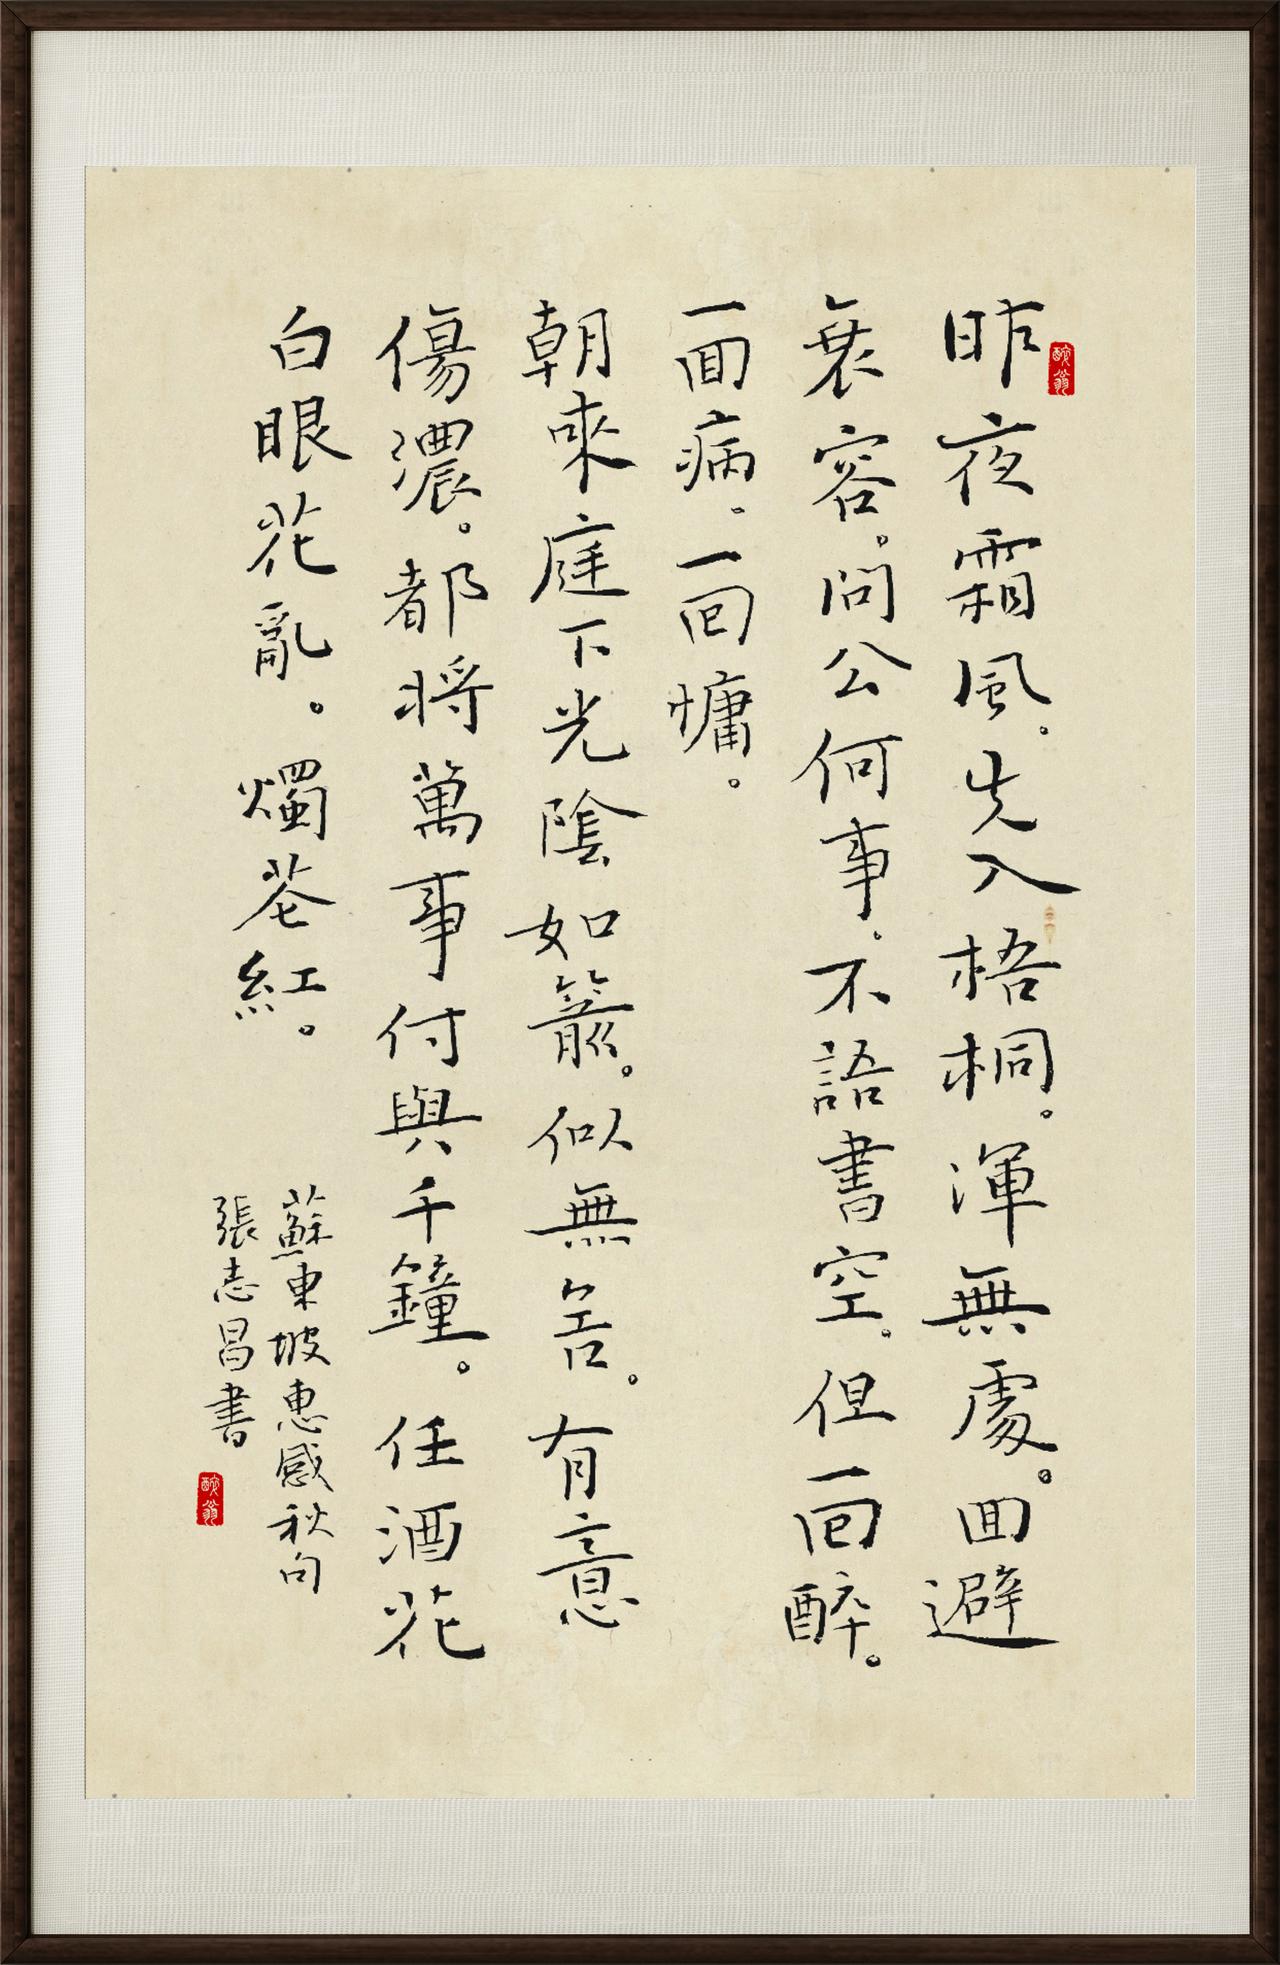 昨夜霜風。先入梧桐。渾無處。回避
衰容。問公何事。不語書空。但一回醉。
一回病。一回慵。
朝來庭下光陰如箭。似無言。有意
傷濃。都將萬事付與千鐘。任酒花
白眼花亂。燭花紅。
蘇東坡惠感秋句
張志昌書
醉翁
醉翁